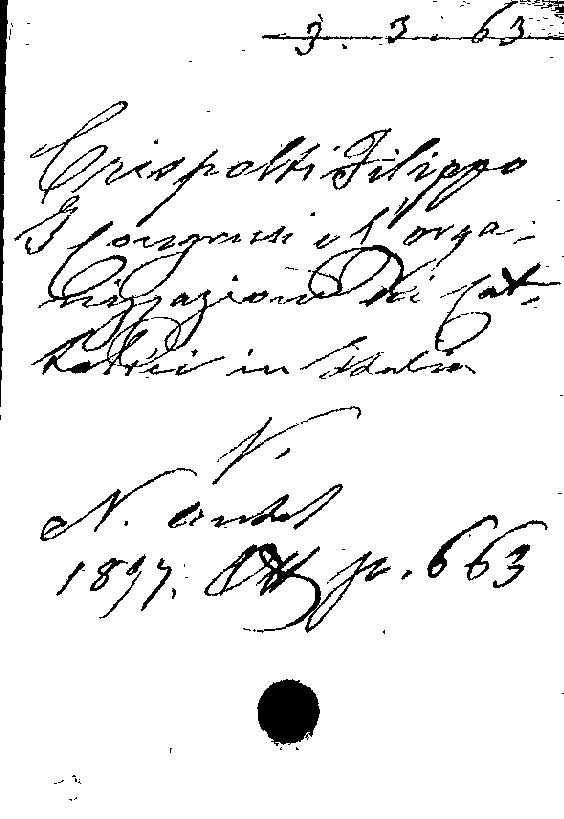 3. 3. 63
Crispolti Filippo
I Congressi e l'orga-
nizzazione dei Cat-
tolici in Italia
V.
N. Antol
1897. p. 663